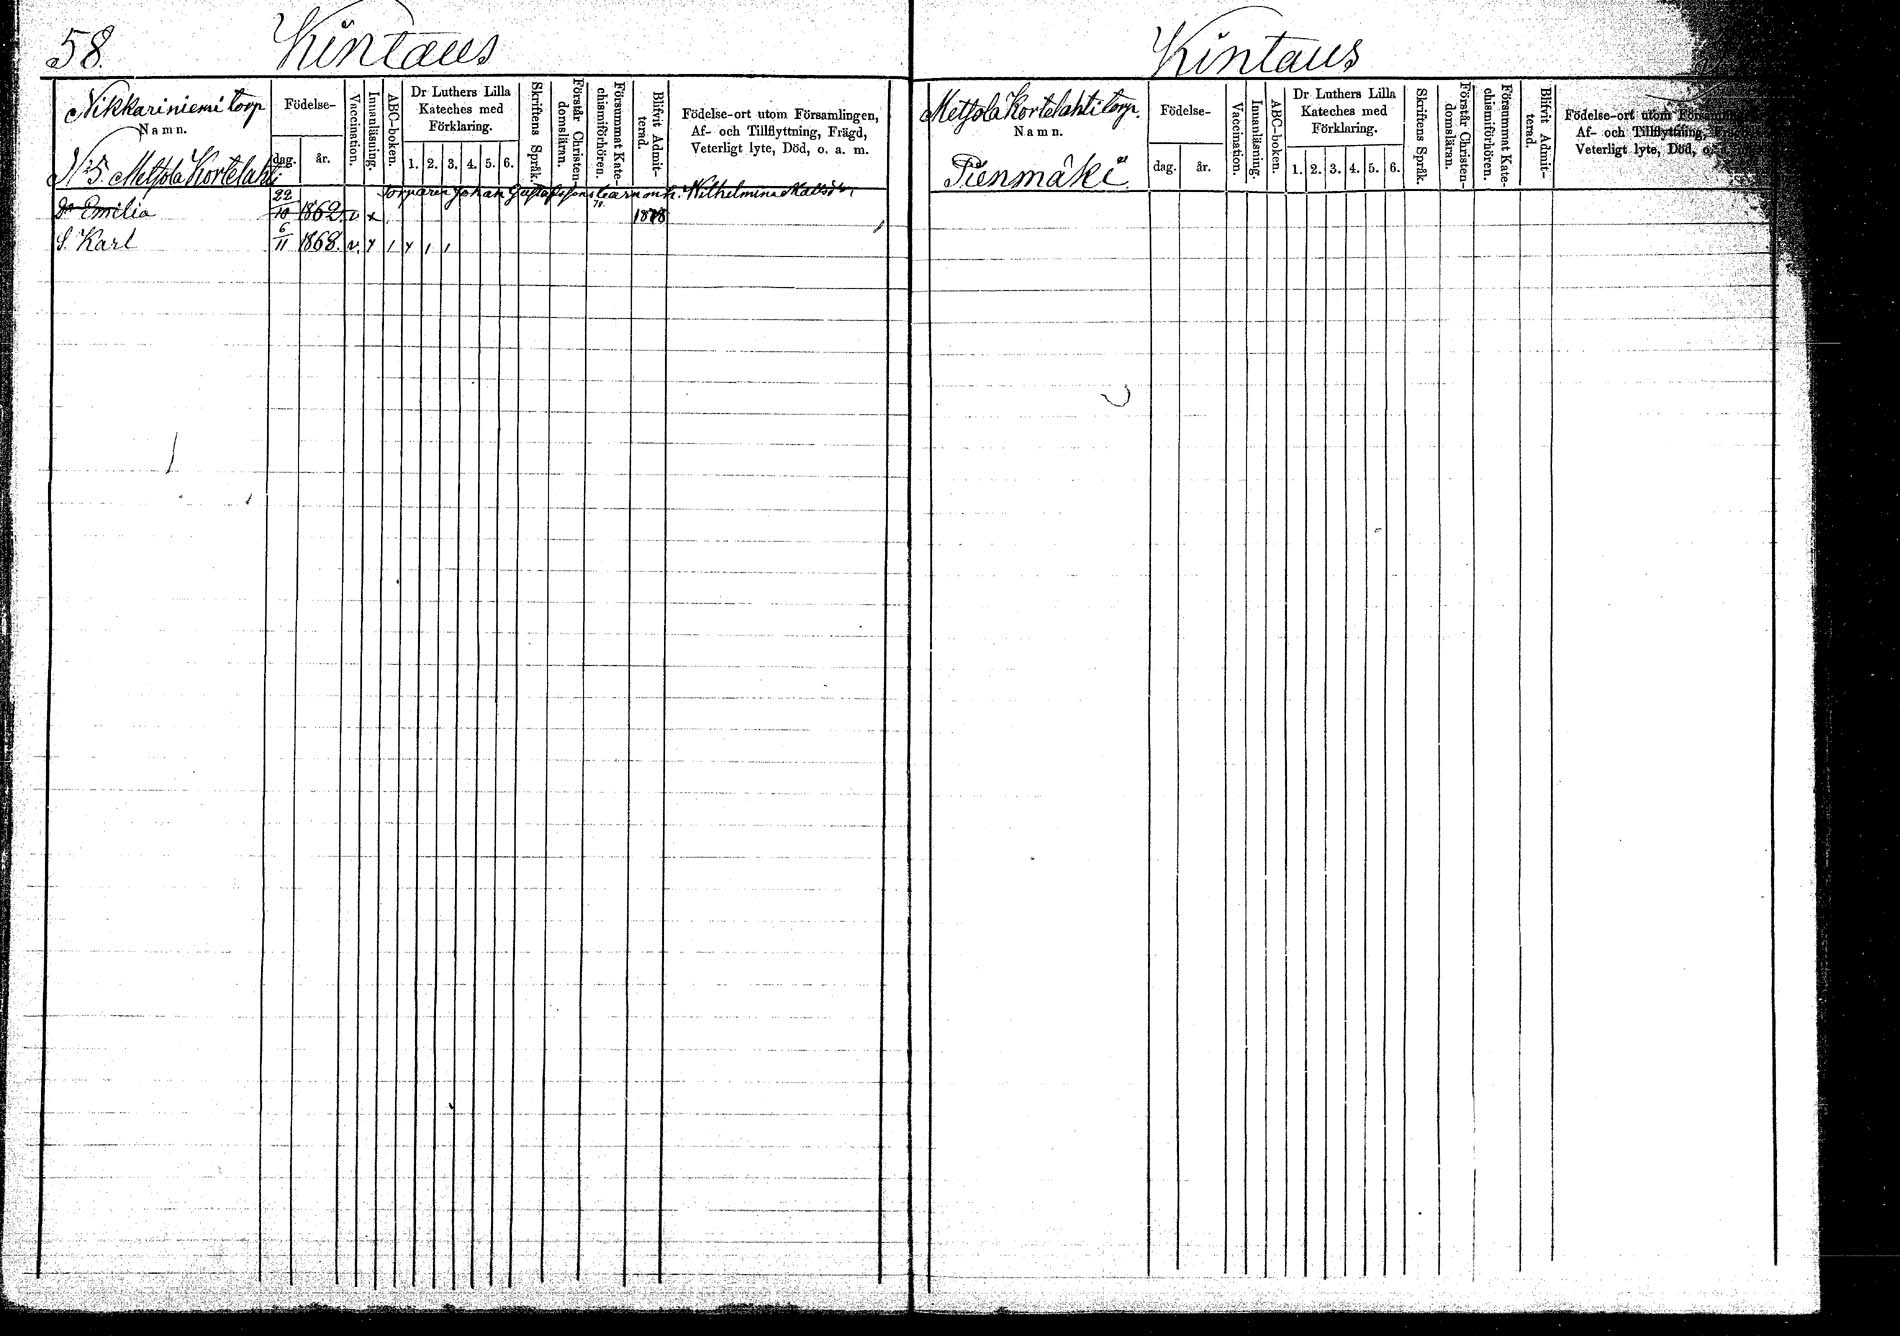 58. Kintaus
Nikkariniemi torp
Namn.
No 5. Metsola Kortelahti
Födelse-
dag. år.
Vaccination.
Innanläsning.
ABC-boken.
Dr Luthers Lilla
Kateches med
Förklaring.
1. 2. 3. 4. 5. 6.
Skriftens Språk.
Förstår Christen-
domsläran.
Försummat Kate-
chismiförhören.
Blifvit Admit-
terad.
Födelse-ort utom Församlingen,
Af- och Tillflyttning, Frägd,
Veterligt lyte, Död, o. a. m.
Torparen Johan Wilhelmina
Dr Emilia 22/10 1862. v x 1878
S. Karl 6/11 1868. v.
Kintaus
Metsola Kortelahti torp.
Namn.
Pienmäki
Födelse-
dag. år.
Vaccination.
Innanläsning.
ABC-boken.
Dr Luthers Lilla
Kateches med
Förklaring.
1. 2. 3. 4. 5. 6.
Skriftens Språk.
Förstår Christen-
domsläran.
Försummat Kate-
chismiförhören.
Blifvit Admit-
terad.
Födelse-ort utom Församlingen,
Af- och Tillflyttning, Frägd,
Veterligt lyte, Död, o. a. m.